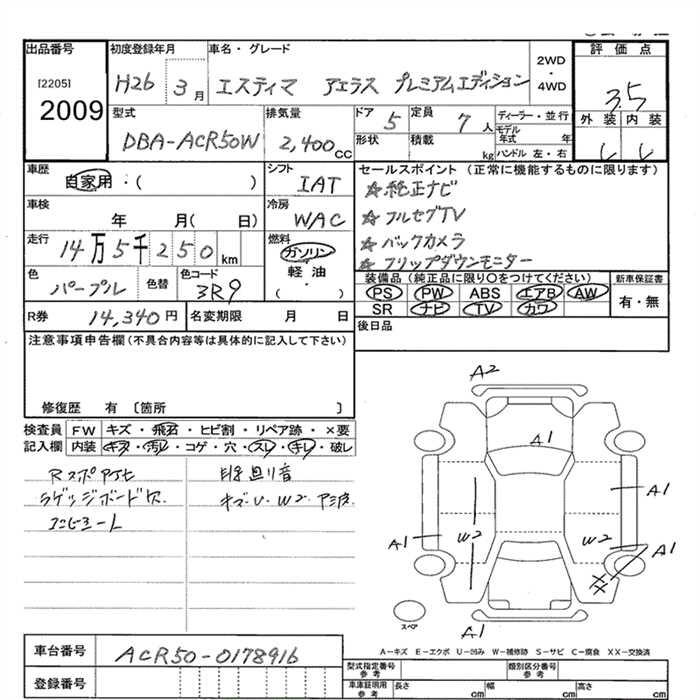 出品番号
[2205]
2009
初度登録年月
H26 3月
車名・グレード
エスティマ アエラス プレミアムエディション
2WD
・
4WD
評価点
3.5
外装 内装
型式
DBA-ACR50W
排気量
2,400cc
ドア 5
定員 7人
形状
積載 kg
ディーラー・並行
モデル年式 年
ハンドル 左・右
車歴
自家用・( )
シフト
IAT
セールスポイント (正常に機能するものに限ります)
☆純正ナビ
☆フルセグTV
☆バックカメラ
☆フリップダウンモニター
車検
年 月( 日)
冷房
WAC
走行
14万5千250km
燃料
ガソリン
軽油
( )
色
パープル
色替
色コード
3R9
装備品 (純正品に限り○をつけてください)
PS PW ABS エアB AW
SR ナビ TV カワ
新車保証書
有・無
R券 14,340円
名変期限 月 日
後日品
注意事項申告欄 (不具合内容等は具体的に記入して下さい)
修復歴 有 〔箇所 〕
検査員 FW キズ・飛石・ヒビ割・リペア跡・×要
記入欄 内装 キズ・汚レ・コゲ・穴・スレ・キレ・破レ
ラゲッジボード欠
キズ・U・W2
A2
A1
A1
W2
A1
W2
A1
XX
A1
スペア
A-キズ E-エクボ U-凹み W-補修跡 S-サビ C-腐食 XX-交換済
車台番号 ACR50-0178916
登録番号
型式指定番号
参考
類別区分番号
参考
車庫証明用
参考
長さ cm
幅 cm
高さ cm